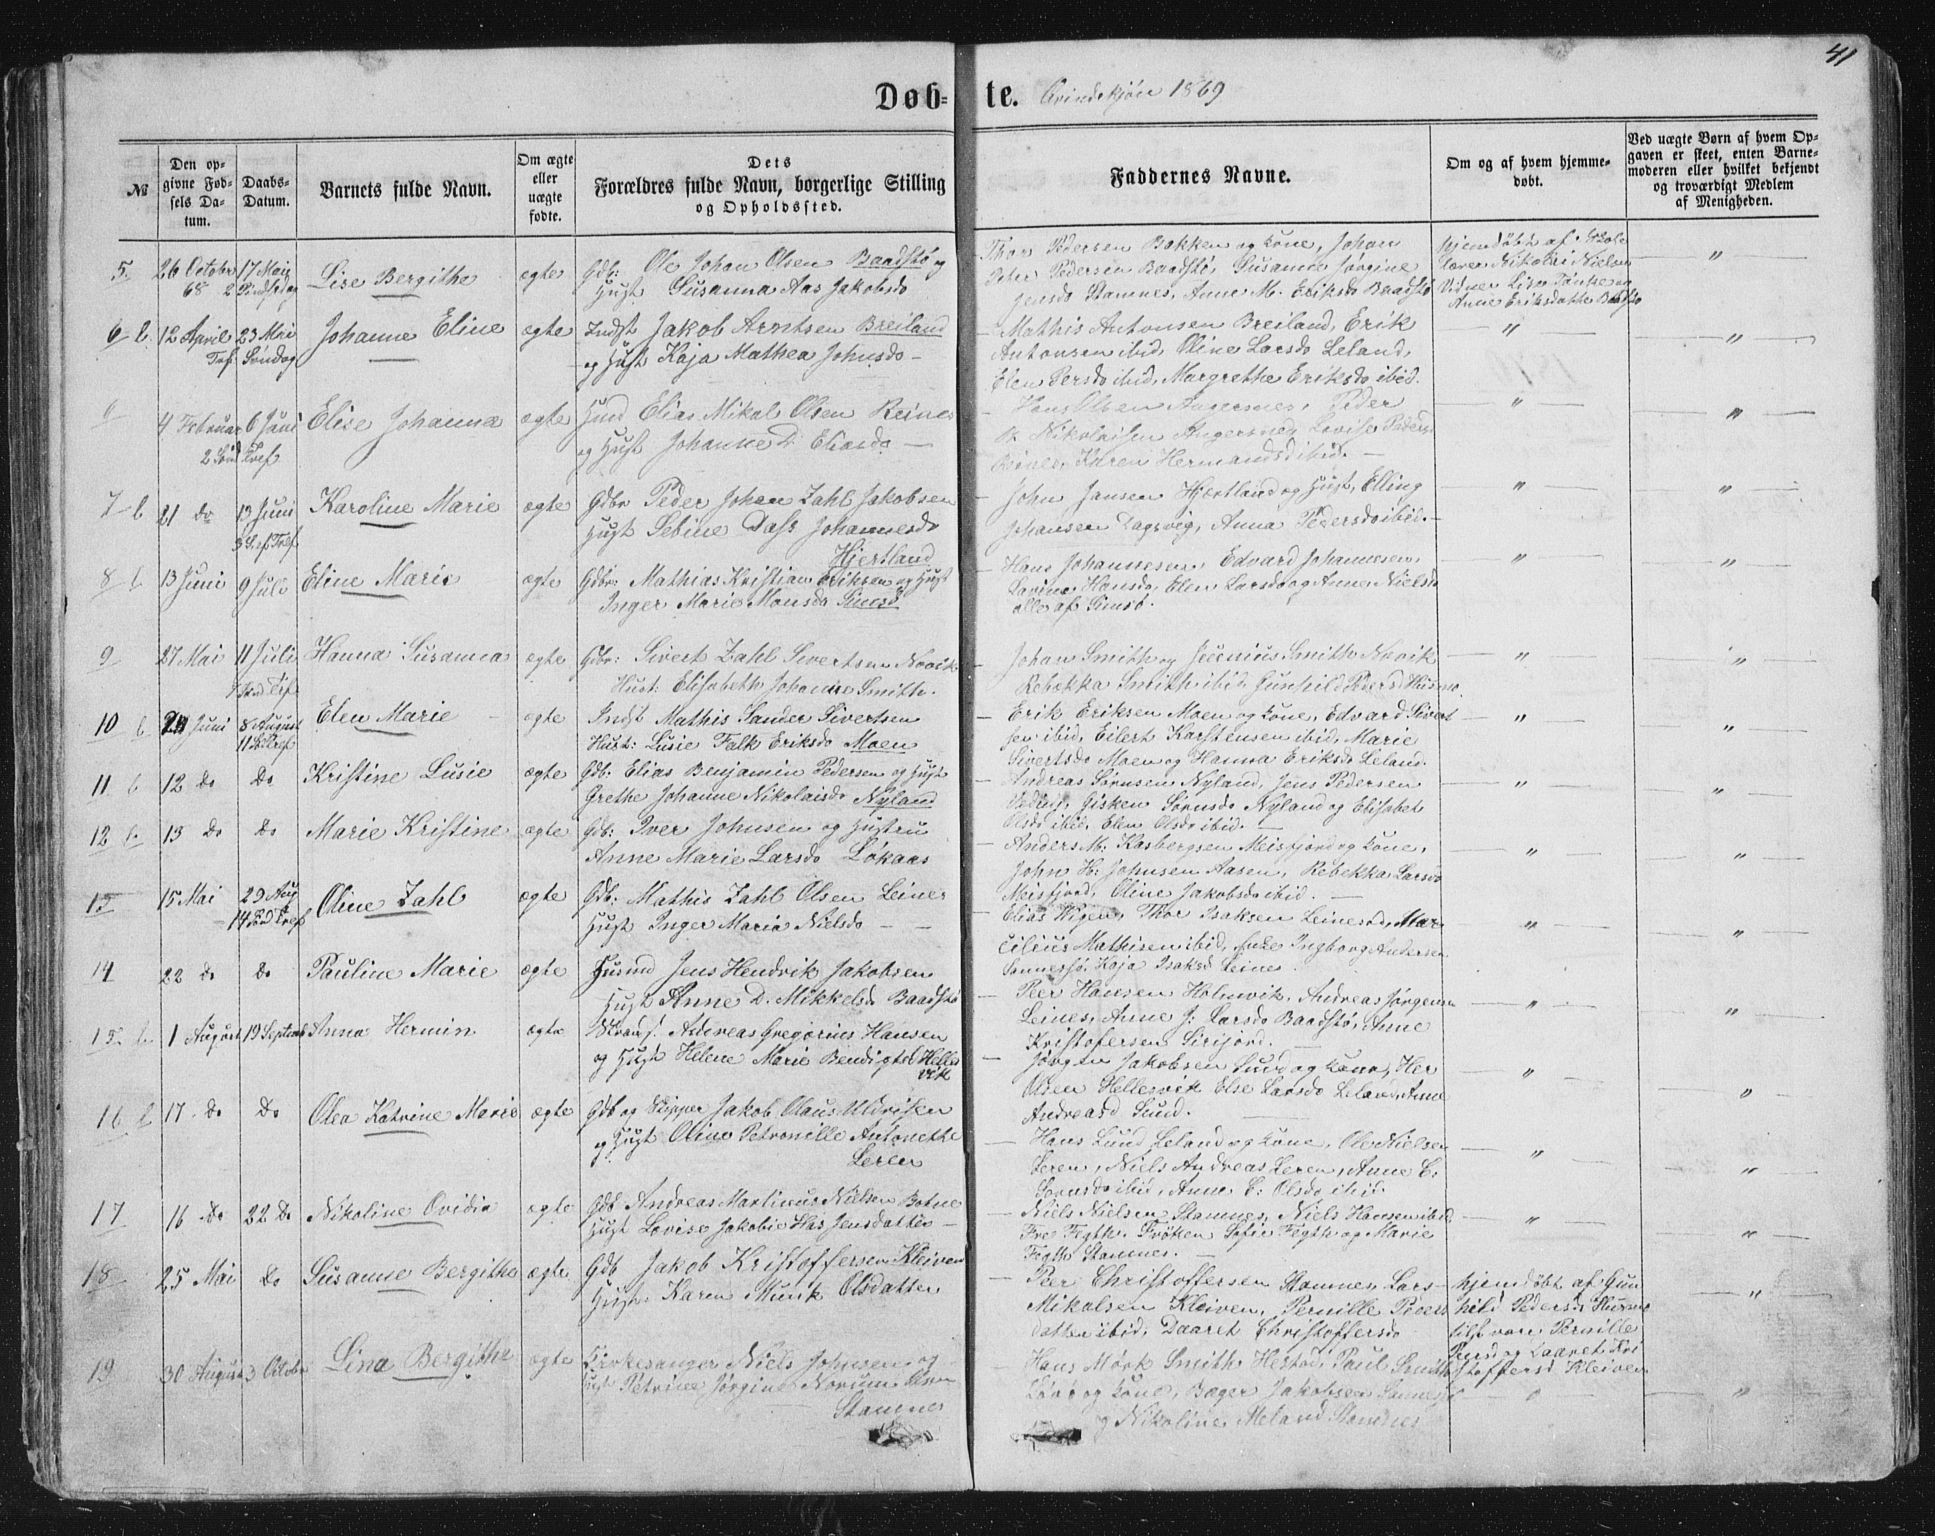 41
Døb-te. Qvindekjøn 1869
№
Den op-
givne Fød-
sels Da-
tum.
Daabs-
Datum.
Barnets fulde Navn.
Om ægte
eller
uægte
fødte.
Dets
Forældres fulde Navn, borgerlige Stilling
og Opholdssted.
Faddernes Navne.
Om og af hvem hjemme-
døbt.
Ved uægte Børn af hvem Op-
gaven er skeet, enten Barne-
moderen eller hvilket bekjendt
og troværdigt Medlem
af Menigheden.
5. 26 Octobr 17 Mai Lise Bergithe ægte Gdb: Ole Johan Olsen Baadstø og
68 2 Pindsedag Hust Susanna Aas Jakobsdo
Thor Pedersen Bakken og Kone, Johan
Peter Pedersen Baadstø, Susanne Jørgine
Jensdo Stamnes, Anne M. Eriksdo Baadstø
hjemdøbt af Skole
lærer Nikolai Nielsen
Vidner Lise Tønke og
Anne Eriksdatter Baadstø
"
6 b 12 April 23 Mai Johanne Eline ægte Indst Jakob Arntsen Breiland
Tref. Søndag og Hust Kaja Mathea Johnsdo
Mathis Antonsen Breiland, Erik
Antonsen ibid, Oline Larsdo Leland,
Elen Persdo ibid, Margrethe Eriksdo ibid.
" "
4 Februar 6 Juni Elise Johanna ægte Husmd Elias Mikal Olsen Reines
2 Sønd Tref og Hust Johanne D. Eliasdo
Hans Olsen Angersnes, Peder
Nikolaisen Angersnes, Lovise Peders
Reines, Karen Hermandsd ibid.
" "
7 b 21 do 13 Juni Karoline Marie ægte Gdbr Peder Johan Zahl Jakobsen
3 S. ef Tref Hust Sebine Dass Johannesdo
Hjertland
John Jansen Hjertland og Hust, Elling
Johansen Dagsvig, Anna Pedersdo ibid.
" "
8 b 13 Juni 9 Juli Eline Marie ægte Gdbr: Mathias Kristian Eriksen og Hust
Inger Marie Monsdo Simsø
Hans Johannesen, Edvard Johannesen,
Lavina Hansdo, Elen Larsdo og Anne Nielsdo
alle af Simsø.
" "
9 27 Mai 11 Juli Hanna Susanna ægte Gdbr: Sivert Zahl Sivertsen Novik
Hust: Elisabeth Johanne Smith.
Johan Smith og Jeenius Smith Novik
Rebekka Smith ibid, Gunhild Peders Husmo.
" "
10 b 24 Juni 8 August Elen Marie ægte Indst Mathis Sander Sivertsen
11 S. Tref Hust: Lusie Falk Eriksdo Moen
Erik Eriksen Moen og Kone, Edvard Sivert
sen ibid, Eilert Karstensen ibid, Marie
Sivertsdo Moen og Hanna Eriksdo Leland.
" "
11 b 12 do do Kristine Lusie ægte Gdb: Elias Benjamin Pedersen og Hust
Grethe Johanne Nikolaisdo Nyland
Andreas Sørnsen Nyland, Jens Pedersen
Gisken Sørnsdo Nyland og Elisabet
Olsdo ibid, Elen Olsdo ibid.
" "
12 b. 13 do do Marie Kristine ægte Gdb: Iver Johnsen og Hustru
Anne Marie Larsdo Løkaas
Anders M: Kasbergsen Meisfjord og Kone,
John H: Johnsen Aasen, Rebekka Larsdo
Meisfjord, Oline Jakobsdo ibid.
" "
13 15 Mai 29 Aug Oline Zahl ægte Gdb: Mathis Zahl Olsen Leines
14 Sønd Tref Hust Inger Maria Nielsdo
Elias Wigen, Thor Isaksen Leinesod, Mar
cilius Mathisen ibid, Ingborg Andersen
Sannessjø, Kaja Isaksd Leines.
" "
14 22 do do Pauline Marie ægte Husmd Jens Hendrik Jakobsen
Hust Anne D. Mikkelsdo Baadstø
Peer Hansen Holmvik, Andreas Jørgensen
Leines, Anne J: Larsdo Baadstø, Anne
Kristofersen Sirijord.
" "
15. b. 1 August 19 Septemb Anna Hermin ægte Strands. Andreas Gregorius Hansen
og Hust Helene Marie Bendigtsd Helles
vik
Jørgen Jakobsen Sund og Kone, Her
Olsen Hellesvik Else Larsdo Leland, Anne
Andreasd Sund.
" "
16 b 17 do do Olea Katrine Marie ægte Gdb og Skipper Jakob Olaus Uldrisen
og Hust Oline Petronille Antonette
Leren
Hans Lund Leland og Kone, Ole Nielsen
Leren, Niels Andreas Leren, Anne C.
Sørnsdo ibid, Anne C: Olsdo ibid.
" "
17 16 do 22 do Nikoline Ovidia ægte Gdb Andreas Martinus Nielsen Botne
Hust Lovise Jakobie Has Jensdatter
Niels Nielsen Stamnes, Niels Hansen ibid
Fre Fegth, Frøken Sofie Fegth og Marie
Fegth Stamnes.
" "
18 25 Mai do Susanne Bergithe ægte Gdb Jakob Kristoffersen Kleiven
Hust: Karen Munk Olsdatter
Peer Christoffersen Stamnes, Lars
Mikalsen Kleiven, Pernille Peders
datter ibid, Daaret Christoffersdo
hjemdøbt af Gun
hild Pedersd. Husmo
tilst vare Pernille
Pensd og Daaret Kri
stoffersd Kleiven
"
19 30 August 3 Octobr Lina Bergithe ægte Kirkesanger Niels Johnsen og
Hust Petrine Jørgine Norum
Stamnes
Hans Mørk Smith Hestad, Paul Smith
og Kone, Bæger Jakobsen
og Nikoline Meland Stamnes
" "